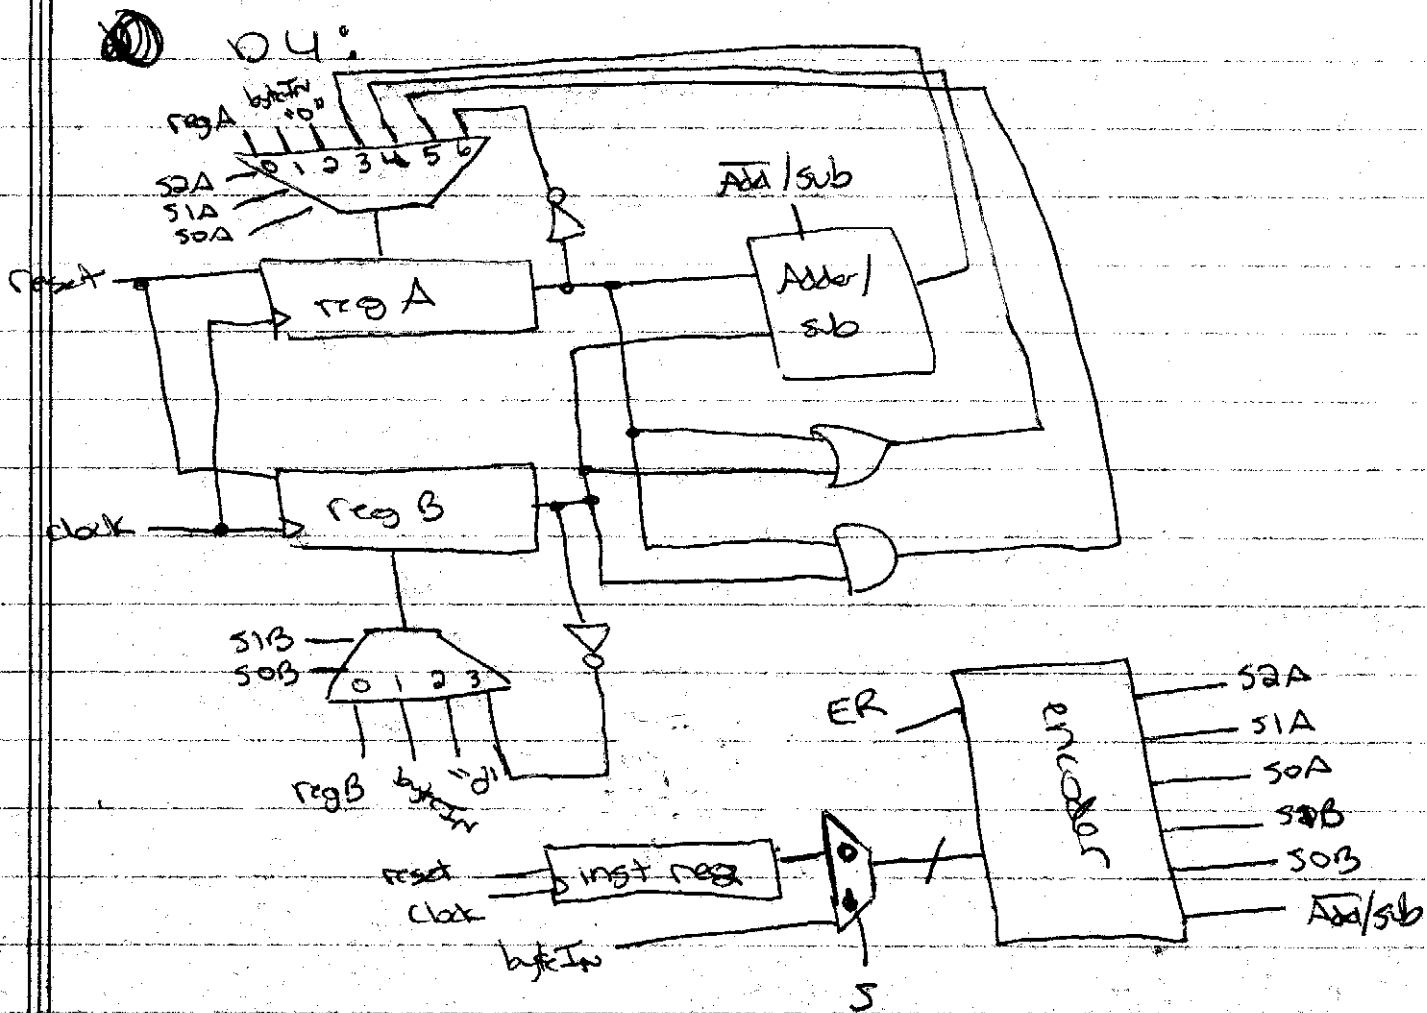 D4:
regA
byteIn
"0"
0 1 2 3 4 5 6
S2A
S1A
S0A
Add/sub
reset
reg A
Adder/
sub
clock
reg B
S1B
S0B
0 1 2 3
regB
byteIn
"0"
ER
encoder
S2A
S1A
S0A
S1B
S0B
Add/sub
reset
clock
inst reg
0
1
byteIn
S